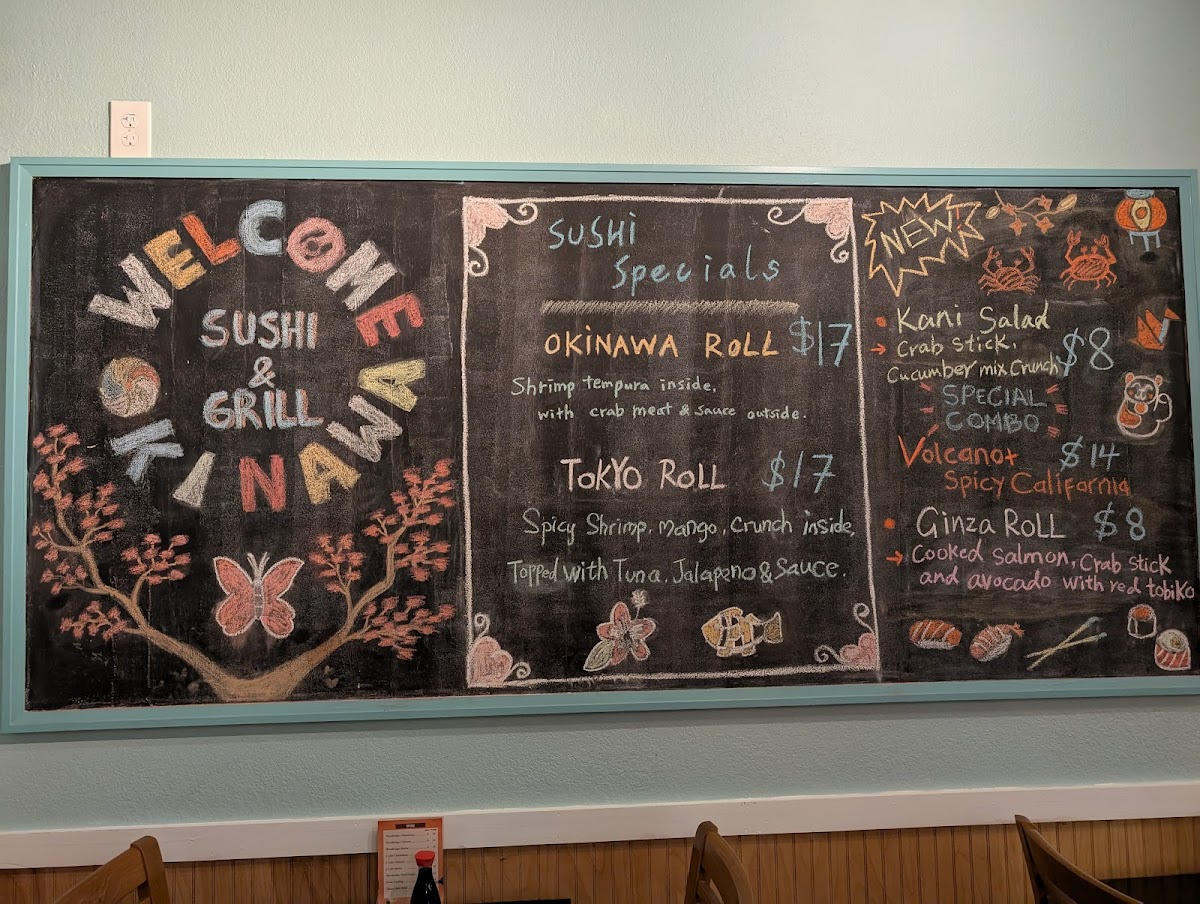 WELCOME
SUSHI
&
GRILL
OKINAWA
SUSHI
Specials
OKINAWA ROLL $17
Shrimp tempura inside,
with crab meat & sauce outside.
TOKYO ROLL $17
Spicy Shrimp, mango, Crunch inside,
Topped with Tuna, Jalapeno & Sauce.
NEW!
Kani Salad
Crab stick, $8
Cucumber mix Crunch
SPECIAL
COMBO
Volcano+ $14
Spicy California
Ginza ROLL $8
Cooked Salmon, Crab stick
and avocado with red tobiko